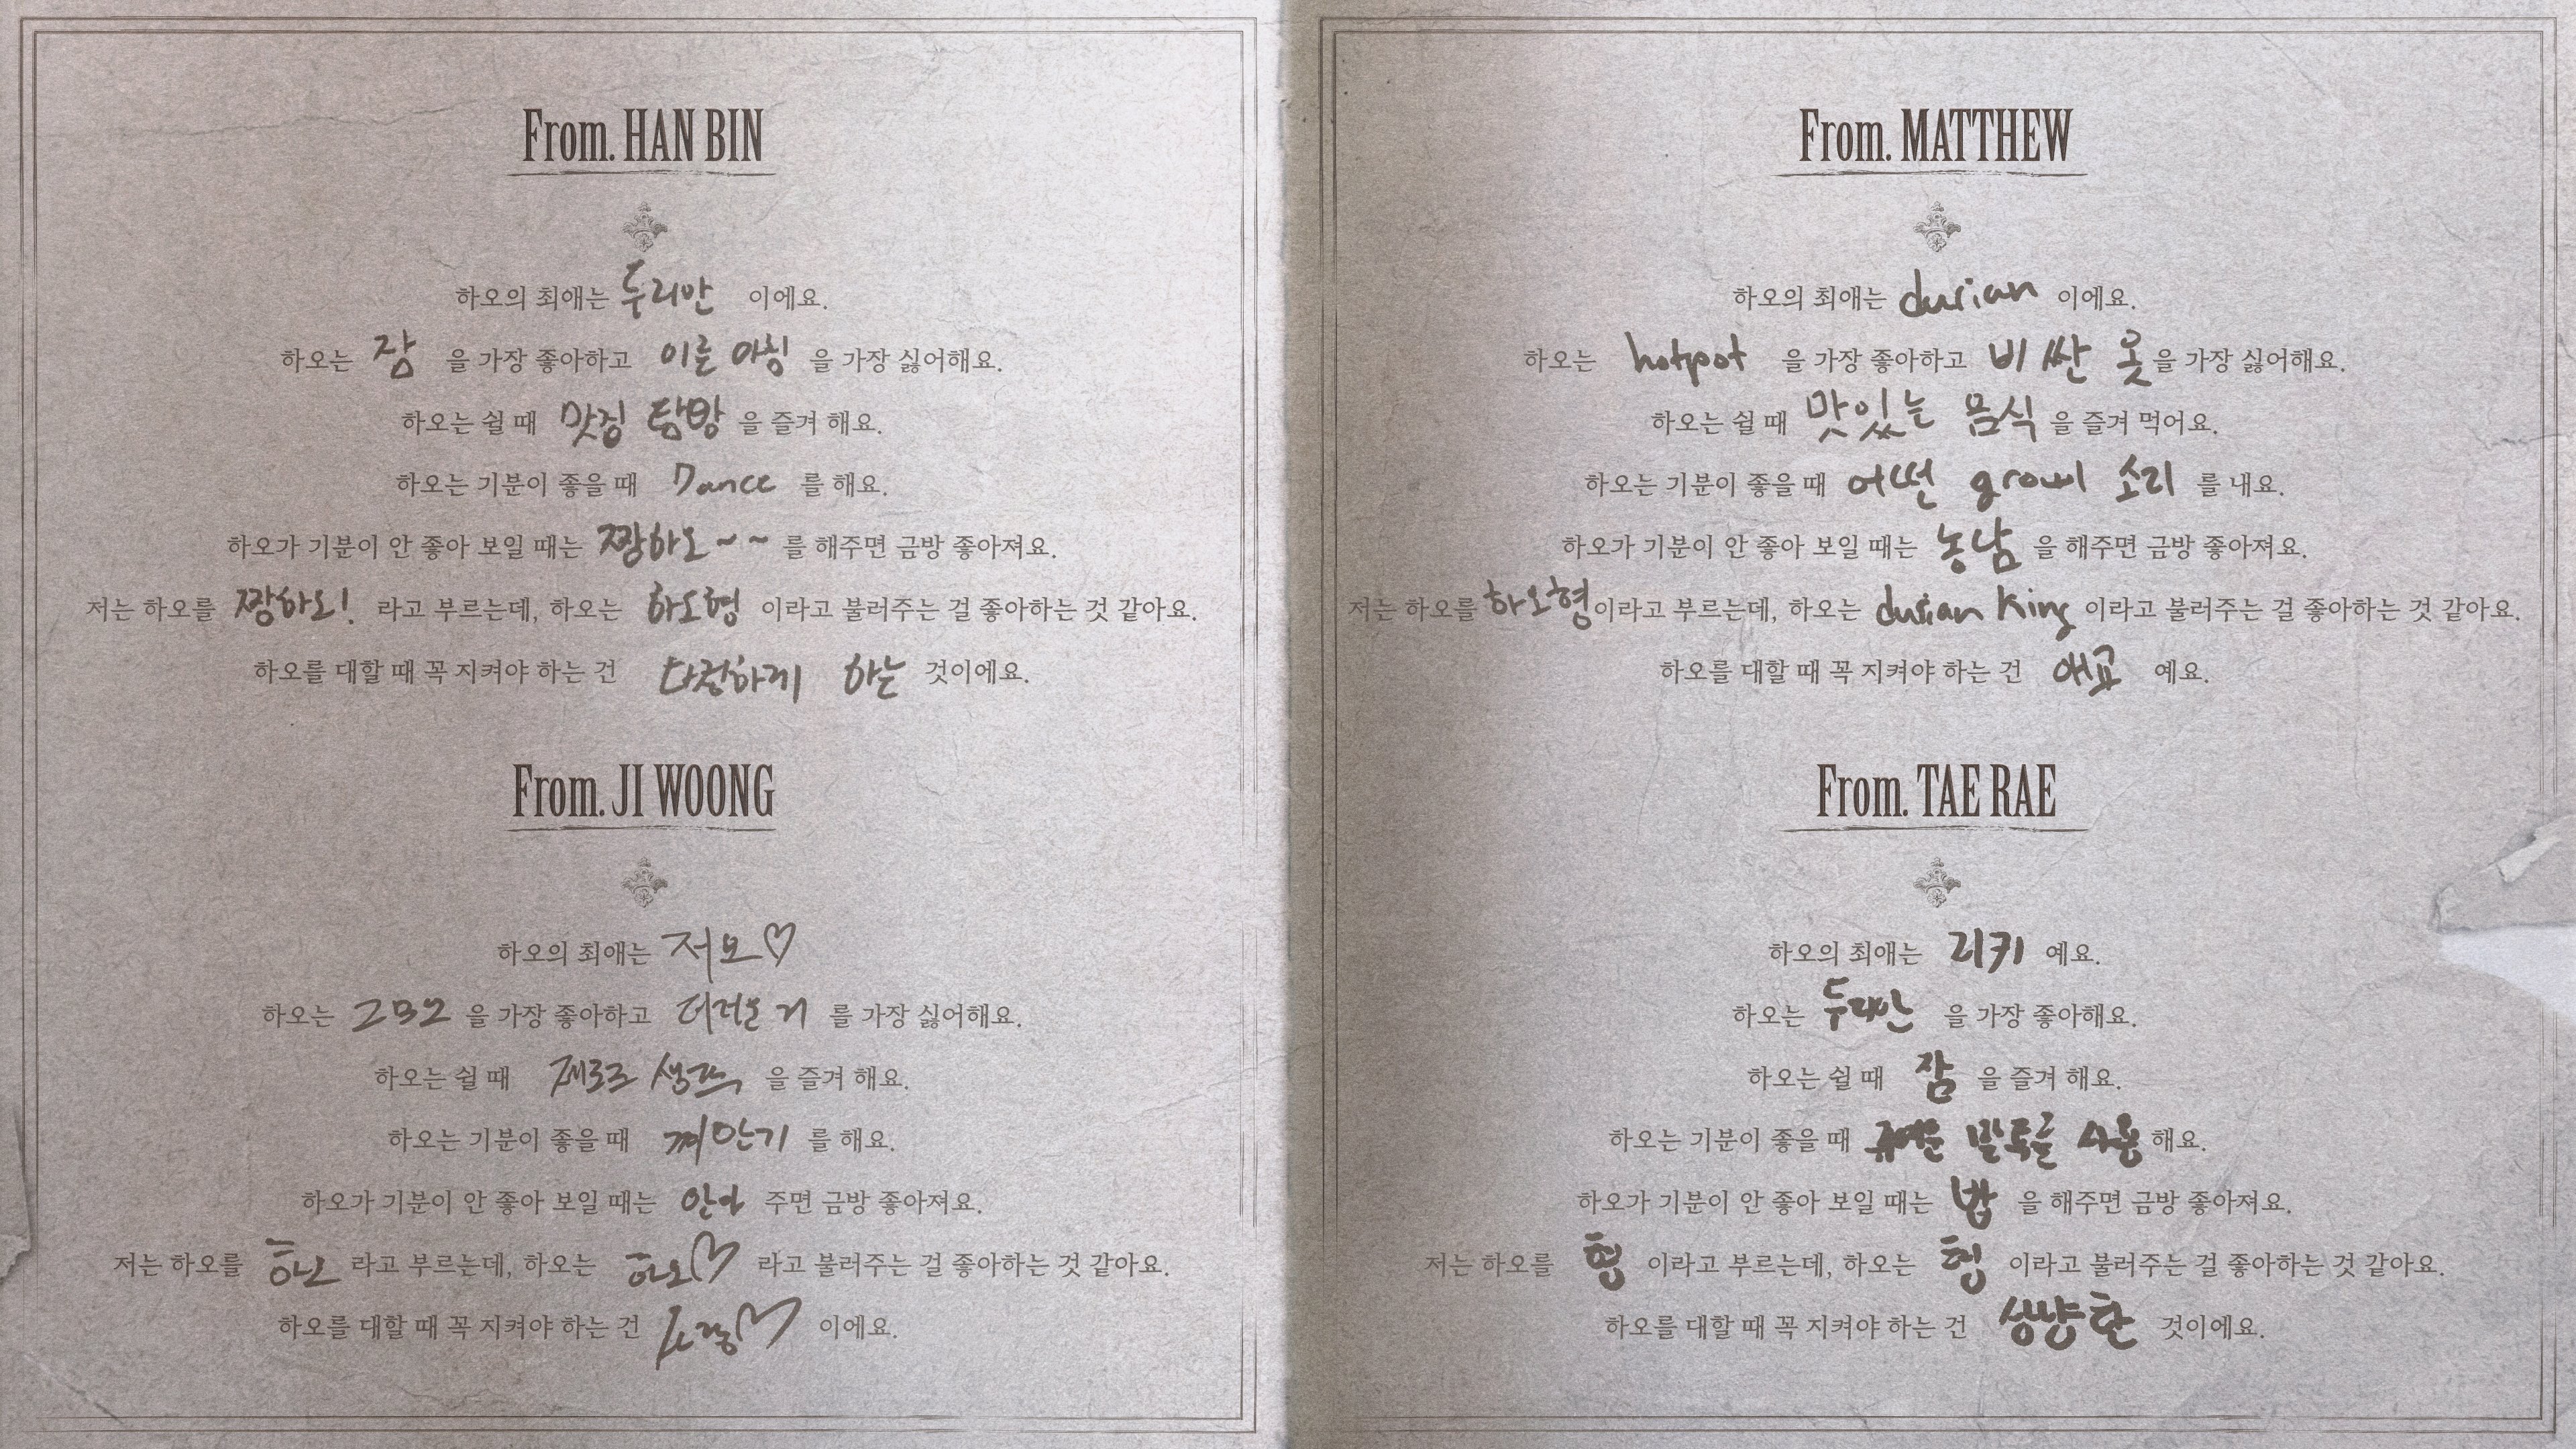 From. HAN BIN
하오의 최애는 두리안 이에요.
하오는 잠 을 가장 좋아하고 이른 아침 을 가장 싫어해요.
하오는 쉴 때 맛집 탐방 을 즐겨 해요.
하오는 기분이 좋을 때 Dance 를 해요.
하오가 기분이 안 좋아 보일 때는 짱하오~~ 를 해주면 금방 좋아져요.
저는 하오를 짱하오! 라고 부르는데, 하오는 하오형 이라고 불러주는 걸 좋아하는 것 같아요.
하오를 대할 때 꼭 지켜야 하는 건 다정하게 하는 것이에요.
From. JI WOONG
하오의 최애는 저요♡
하오는 을 가장 좋아하고 더러운 거 를 가장 싫어해요.
하오는 쉴 때 제로즈 생각 을 즐겨 해요.
하오는 기분이 좋을 때 껴안기 를 해요.
하오가 기분이 안 좋아 보일 때는 안아 주면 금방 좋아져요.
저는 하오를 하오 라고 부르는데, 하오는 하오♡ 라고 불러주는 걸 좋아하는 것 같아요.
하오를 대할 때 꼭 지켜야 하는 건 이에요.
From. MATTHEW
하오의 최애는 durian 이에요.
하오는 hotpot 을 가장 좋아하고 비싼 옷 을 가장 싫어해요.
하오는 쉴 때 맛있는 음식 을 즐겨 먹어요.
하오는 기분이 좋을 때 어떤 growl 소리 를 내요.
하오가 기분이 안 좋아 보일 때는 농담 을 해주면 금방 좋아져요.
저는 하오를 하오형 이라고 부르는데, 하오는 durian King 이라고 불러주는 걸 좋아하는 것 같아요.
하오를 대할 때 꼭 지켜야 하는 건 애교 예요.
From. TAE RAE
하오의 최애는 리키 예요.
하오는 두리안 을 가장 좋아해요.
하오는 쉴 때 잠 을 즐겨 해요.
하오는 기분이 좋을 때 귀여운 말투를 사용 해요.
하오가 기분이 안 좋아 보일 때는 밥 을 해주면 금방 좋아져요.
저는 하오를 형 이라고 부르는데, 하오는 형 이라고 불러주는 걸 좋아하는 것 같아요.
하오를 대할 때 꼭 지켜야 하는 건 상냥한 것이에요.